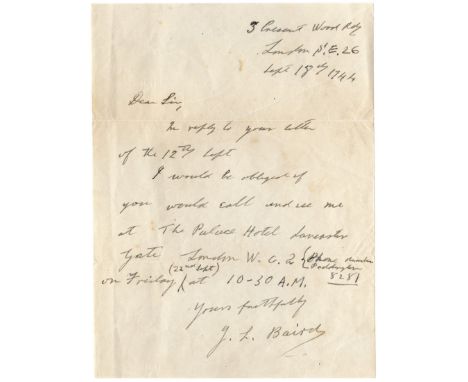 3 Crescent Wood Rd
London S.E. 26
Sept 18th 1944
Dear Sir,
In reply to your letter
of the 12th Sept
I would be obliged if
you would call and see me
at The Palace Hotel Lancaster
Gate London W.C.2 (Phone number
Paddington
8281
(22nd Sept)
on Friday at 10-30 A.M.
Yours faithfully
J. L. Baird